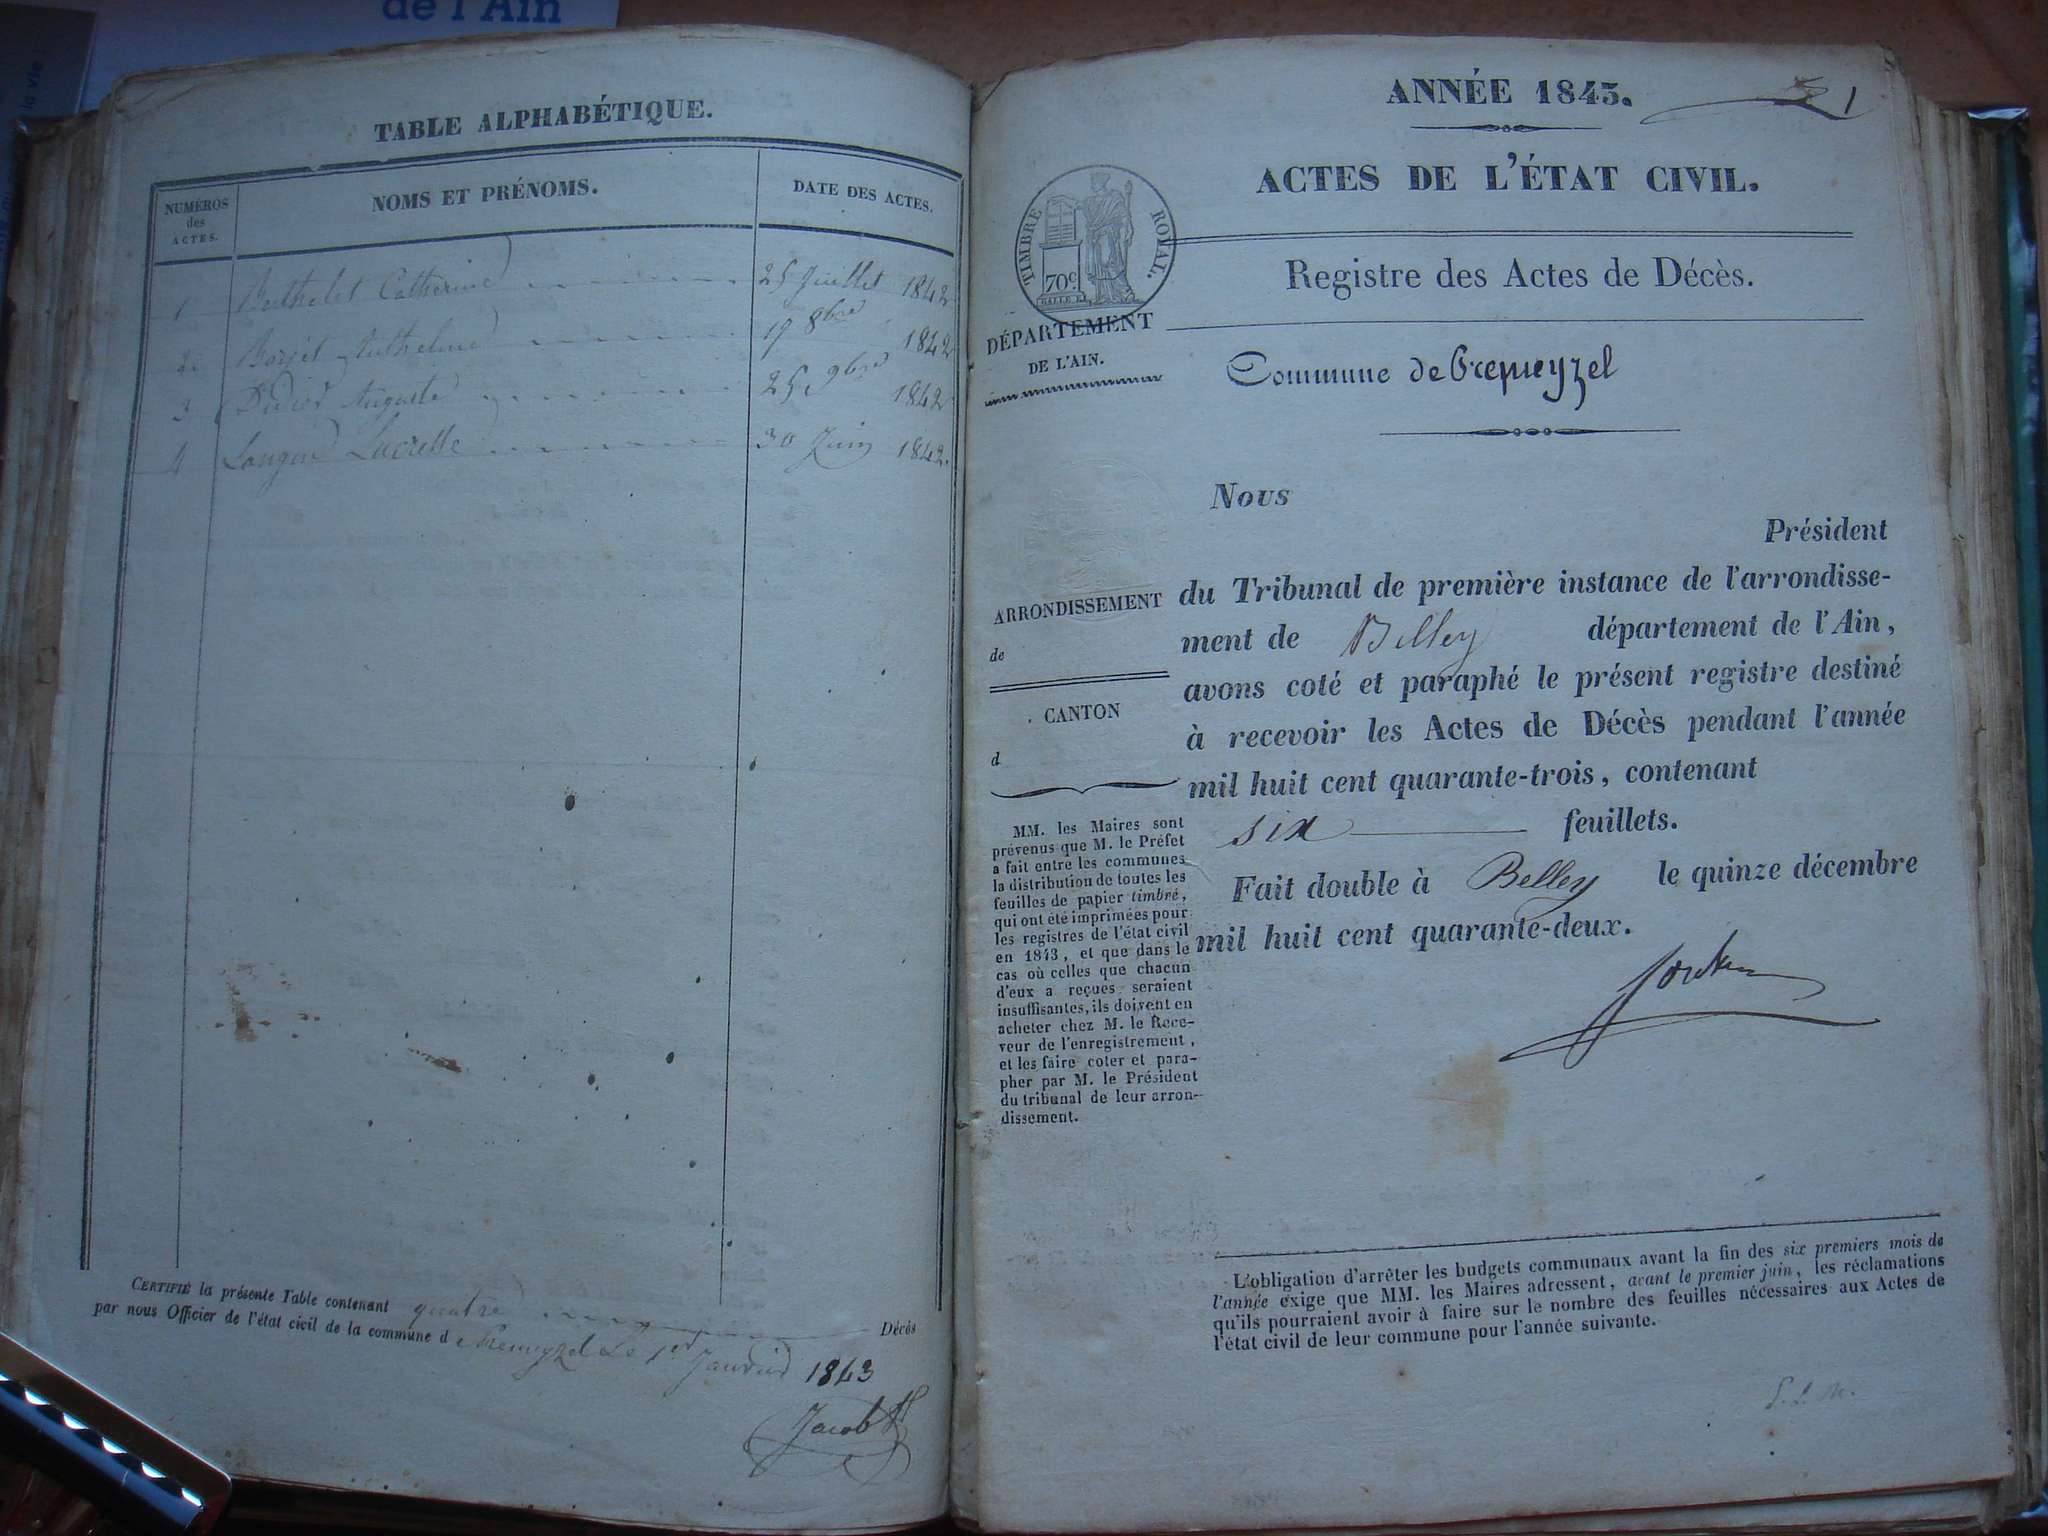 de l'Ain
la vie
TABLE ALPHABÉTIQUE.
NUMÉROS des ACTES.
NOMS ET PRÉNOMS.
DATE DES ACTES.
1 Berthelet Catherine 25 Juillet 1842
2 Borjet Anthelme 19 8bre 1842
3 Didier Auguste 25 9bre 1842
4 Longin Lucresse 30 Juin 1842.
CERTIFIÉ la présente Table contenant quatre Décès
par nous Officier de l'état civil de la commune de Premeyzel Le 1er Janvier 1843
Jacob
ANNÉE 1843.
1
ACTES DE L'ÉTAT CIVIL.
TIMBRE ROYAL.
70c
Registre des Actes de Décès.
DÉPARTEMENT
DE L'AIN.
Commune de Premeyzel
Nous
Président
du Tribunal de première instance de l'arrondisse-
ment de Belley département de l'Ain,
avons coté et paraphé le présent registre destiné
à recevoir les Actes de Décès pendant l'année
mil huit cent quarante-trois, contenant
six feuillets.
Fait double à Belley le quinze décembre
mil huit cent quarante-deux.
ARRONDISSEMENT
de
CANTON
d
MM. les Maires sont
prévenus que M. le Préfet
a fait entre les communes
la distribution de toutes les
feuilles de papier timbré,
qui ont été imprimées pour
les registres de l'état civil
en 1843, et que dans le
cas où celles que chacun
d'eux a reçues seraient
insuffisantes, ils doivent en
acheter chez M. le Rece-
veur de l'enregistrement,
et les faire coter et para-
pher par M. le Président
du tribunal de leur arron-
dissement.
L'obligation d'arrêter les budgets communaux avant la fin des six premiers mois de
l'année exige que MM. les Maires adressent, avant le premier juin, les réclamations
qu'ils pourraient avoir à faire sur le nombre des feuilles nécessaires aux Actes de
l'état civil de leur commune pour l'année suivante.